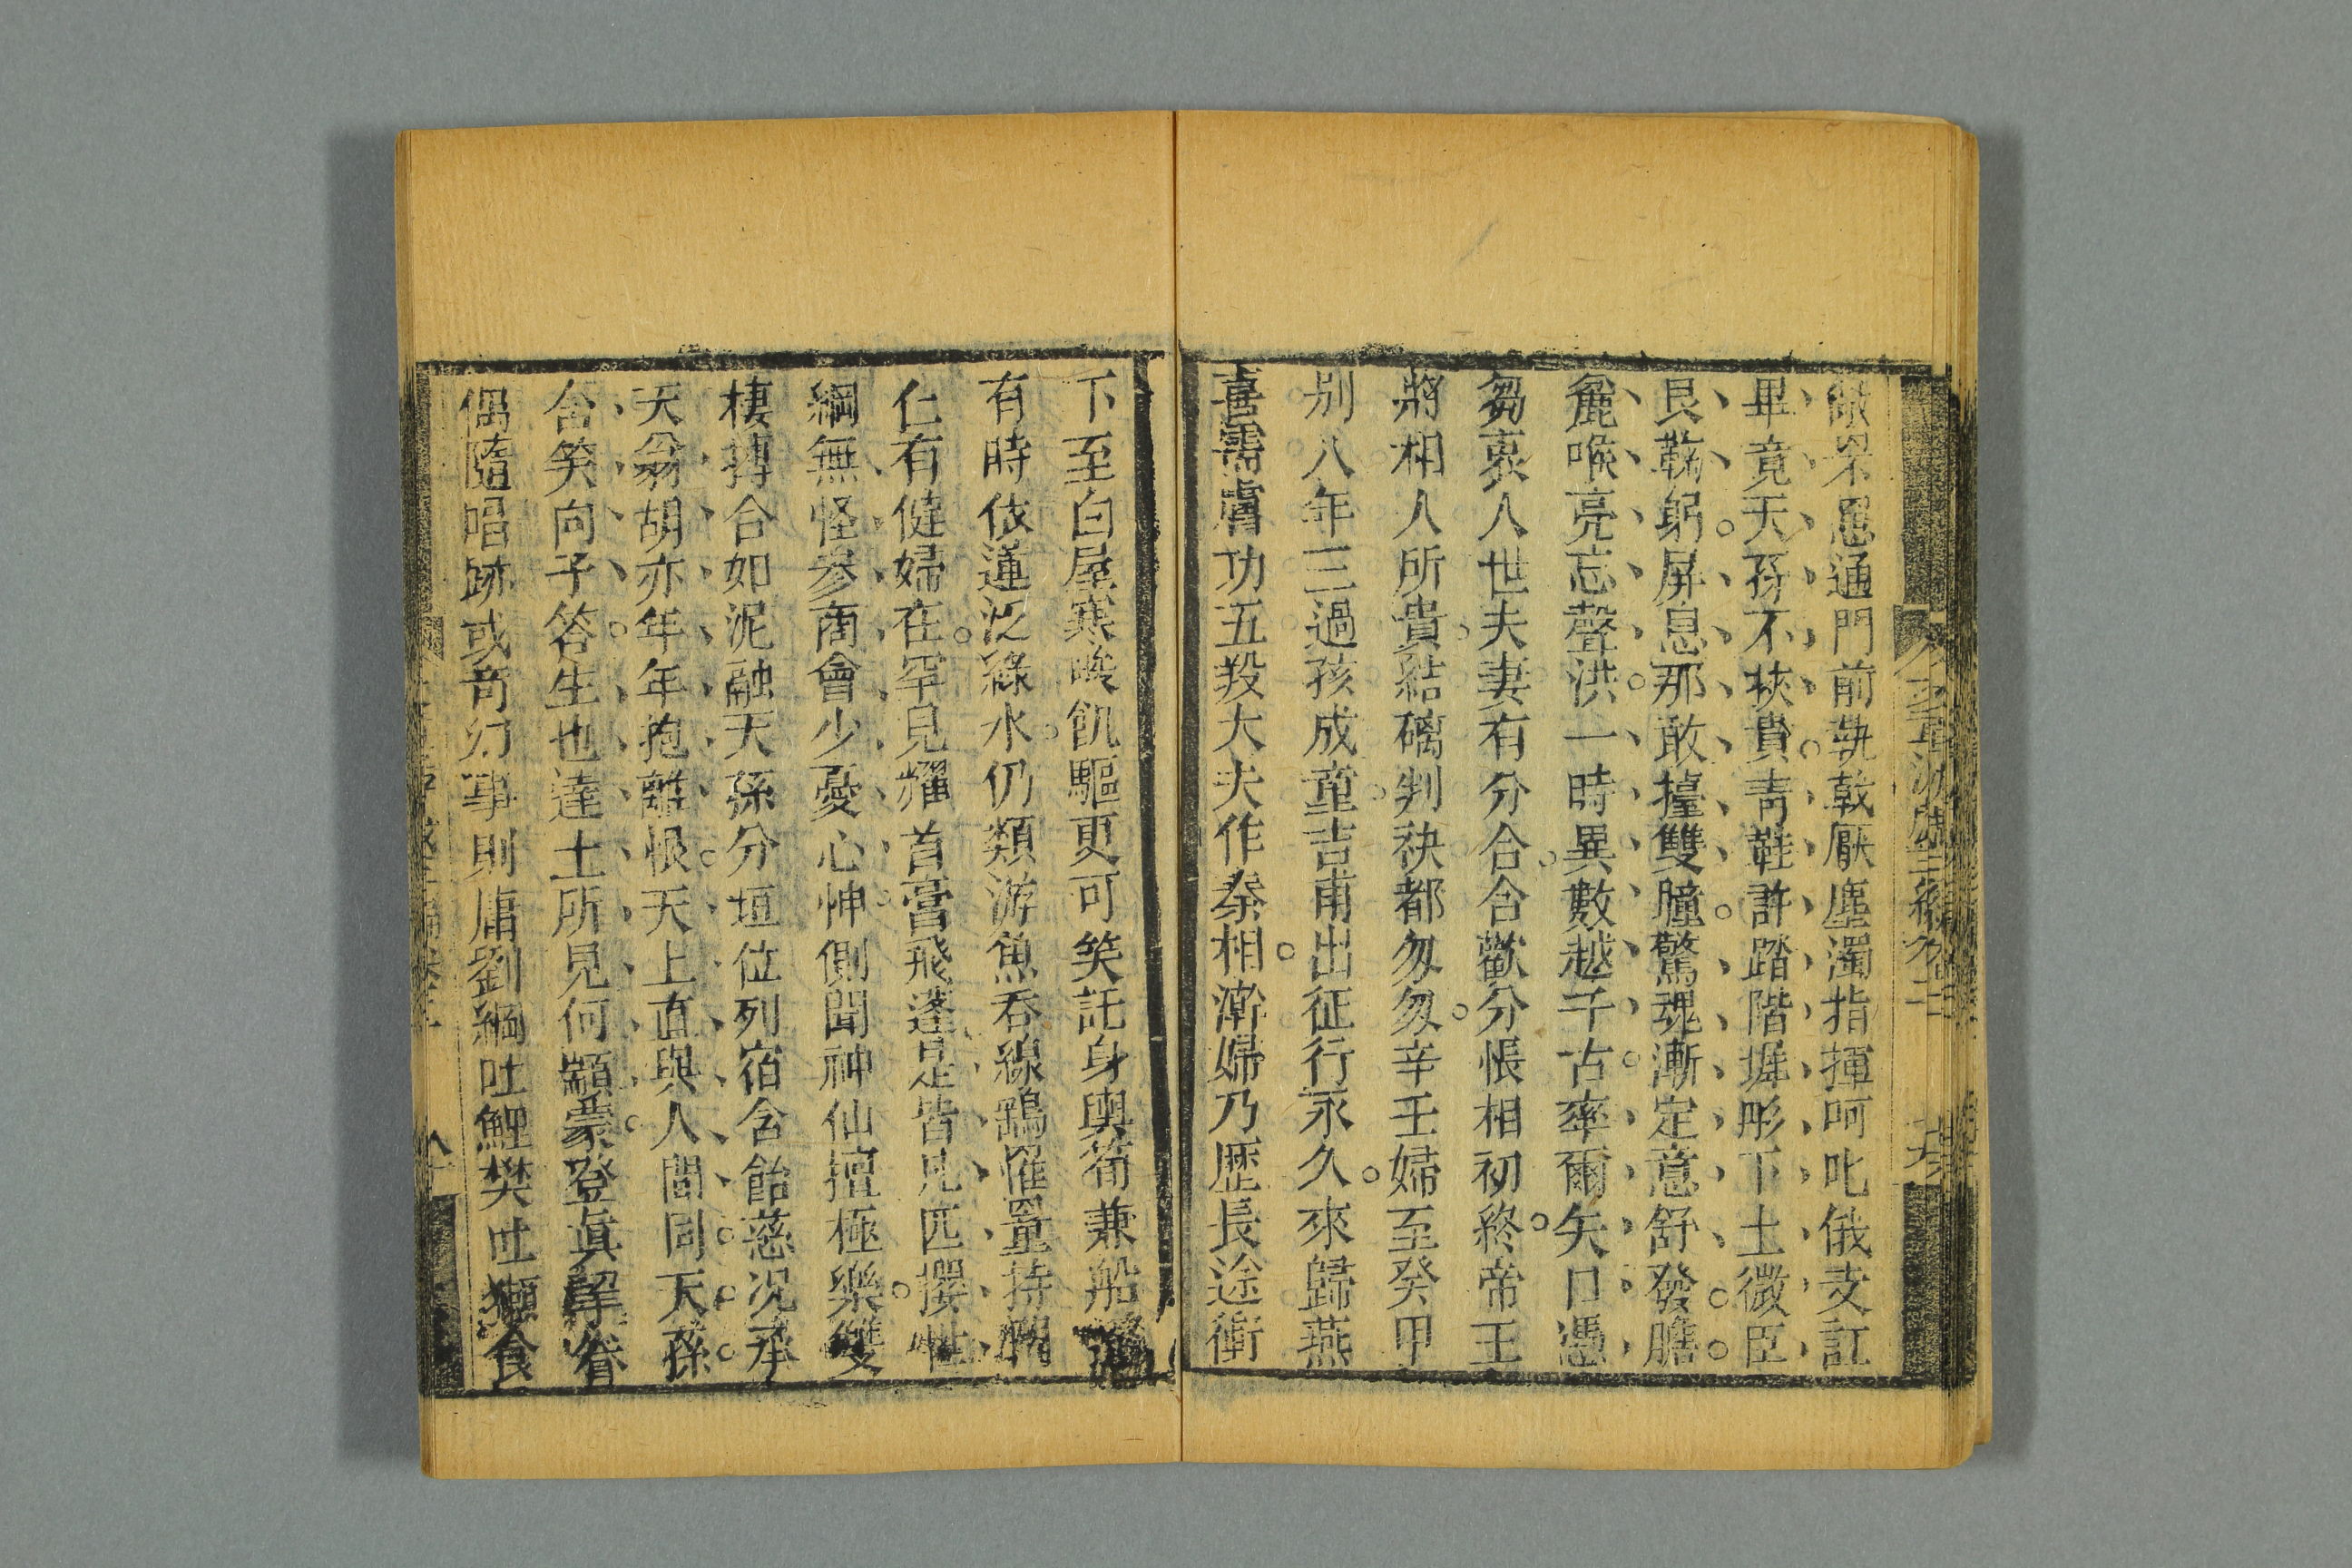 罘罳通門前執戟厭塵濁指揮呵叱俄支訌
畢竟天孫不挾貴青鞋許踏階墀彤下土微臣
艮鞠躬屏息那敢擡雙瞳驚魂漸定意舒發膽
麄喉亮忘聲洪一時異數越千古率爾矢口憑
芻蕘人世夫妻有分合合歡分悵相初終帝王
將相人所貴結磽判袂都匆匆辛壬婦至癸甲
別八年三過孩成童吉甫出征行永久來歸燕
喜需膚功五羖大夫作秦相澣婦乃歷長途衝
下至白屋寒畯飢驅更可笑託身輿筍兼船
有時依蓮泛綠水仍類游魚吞線鷄罹罿持
仁有健婦在罕見獾首膏飛蓬是皆凡匹撄
綱無怪參商會少憂心忡側聞神仙擅極樂雙
棲摶合如泥融天孫分垣位列宿含飴慈況承
天翁胡亦年年抱離恨天上直與人間同天孫
含笑向予答生也達士所見何顓蒙登眞眷
偶隨唱跡或奇幻事則庸劉綱吐鯉樊吐獺食